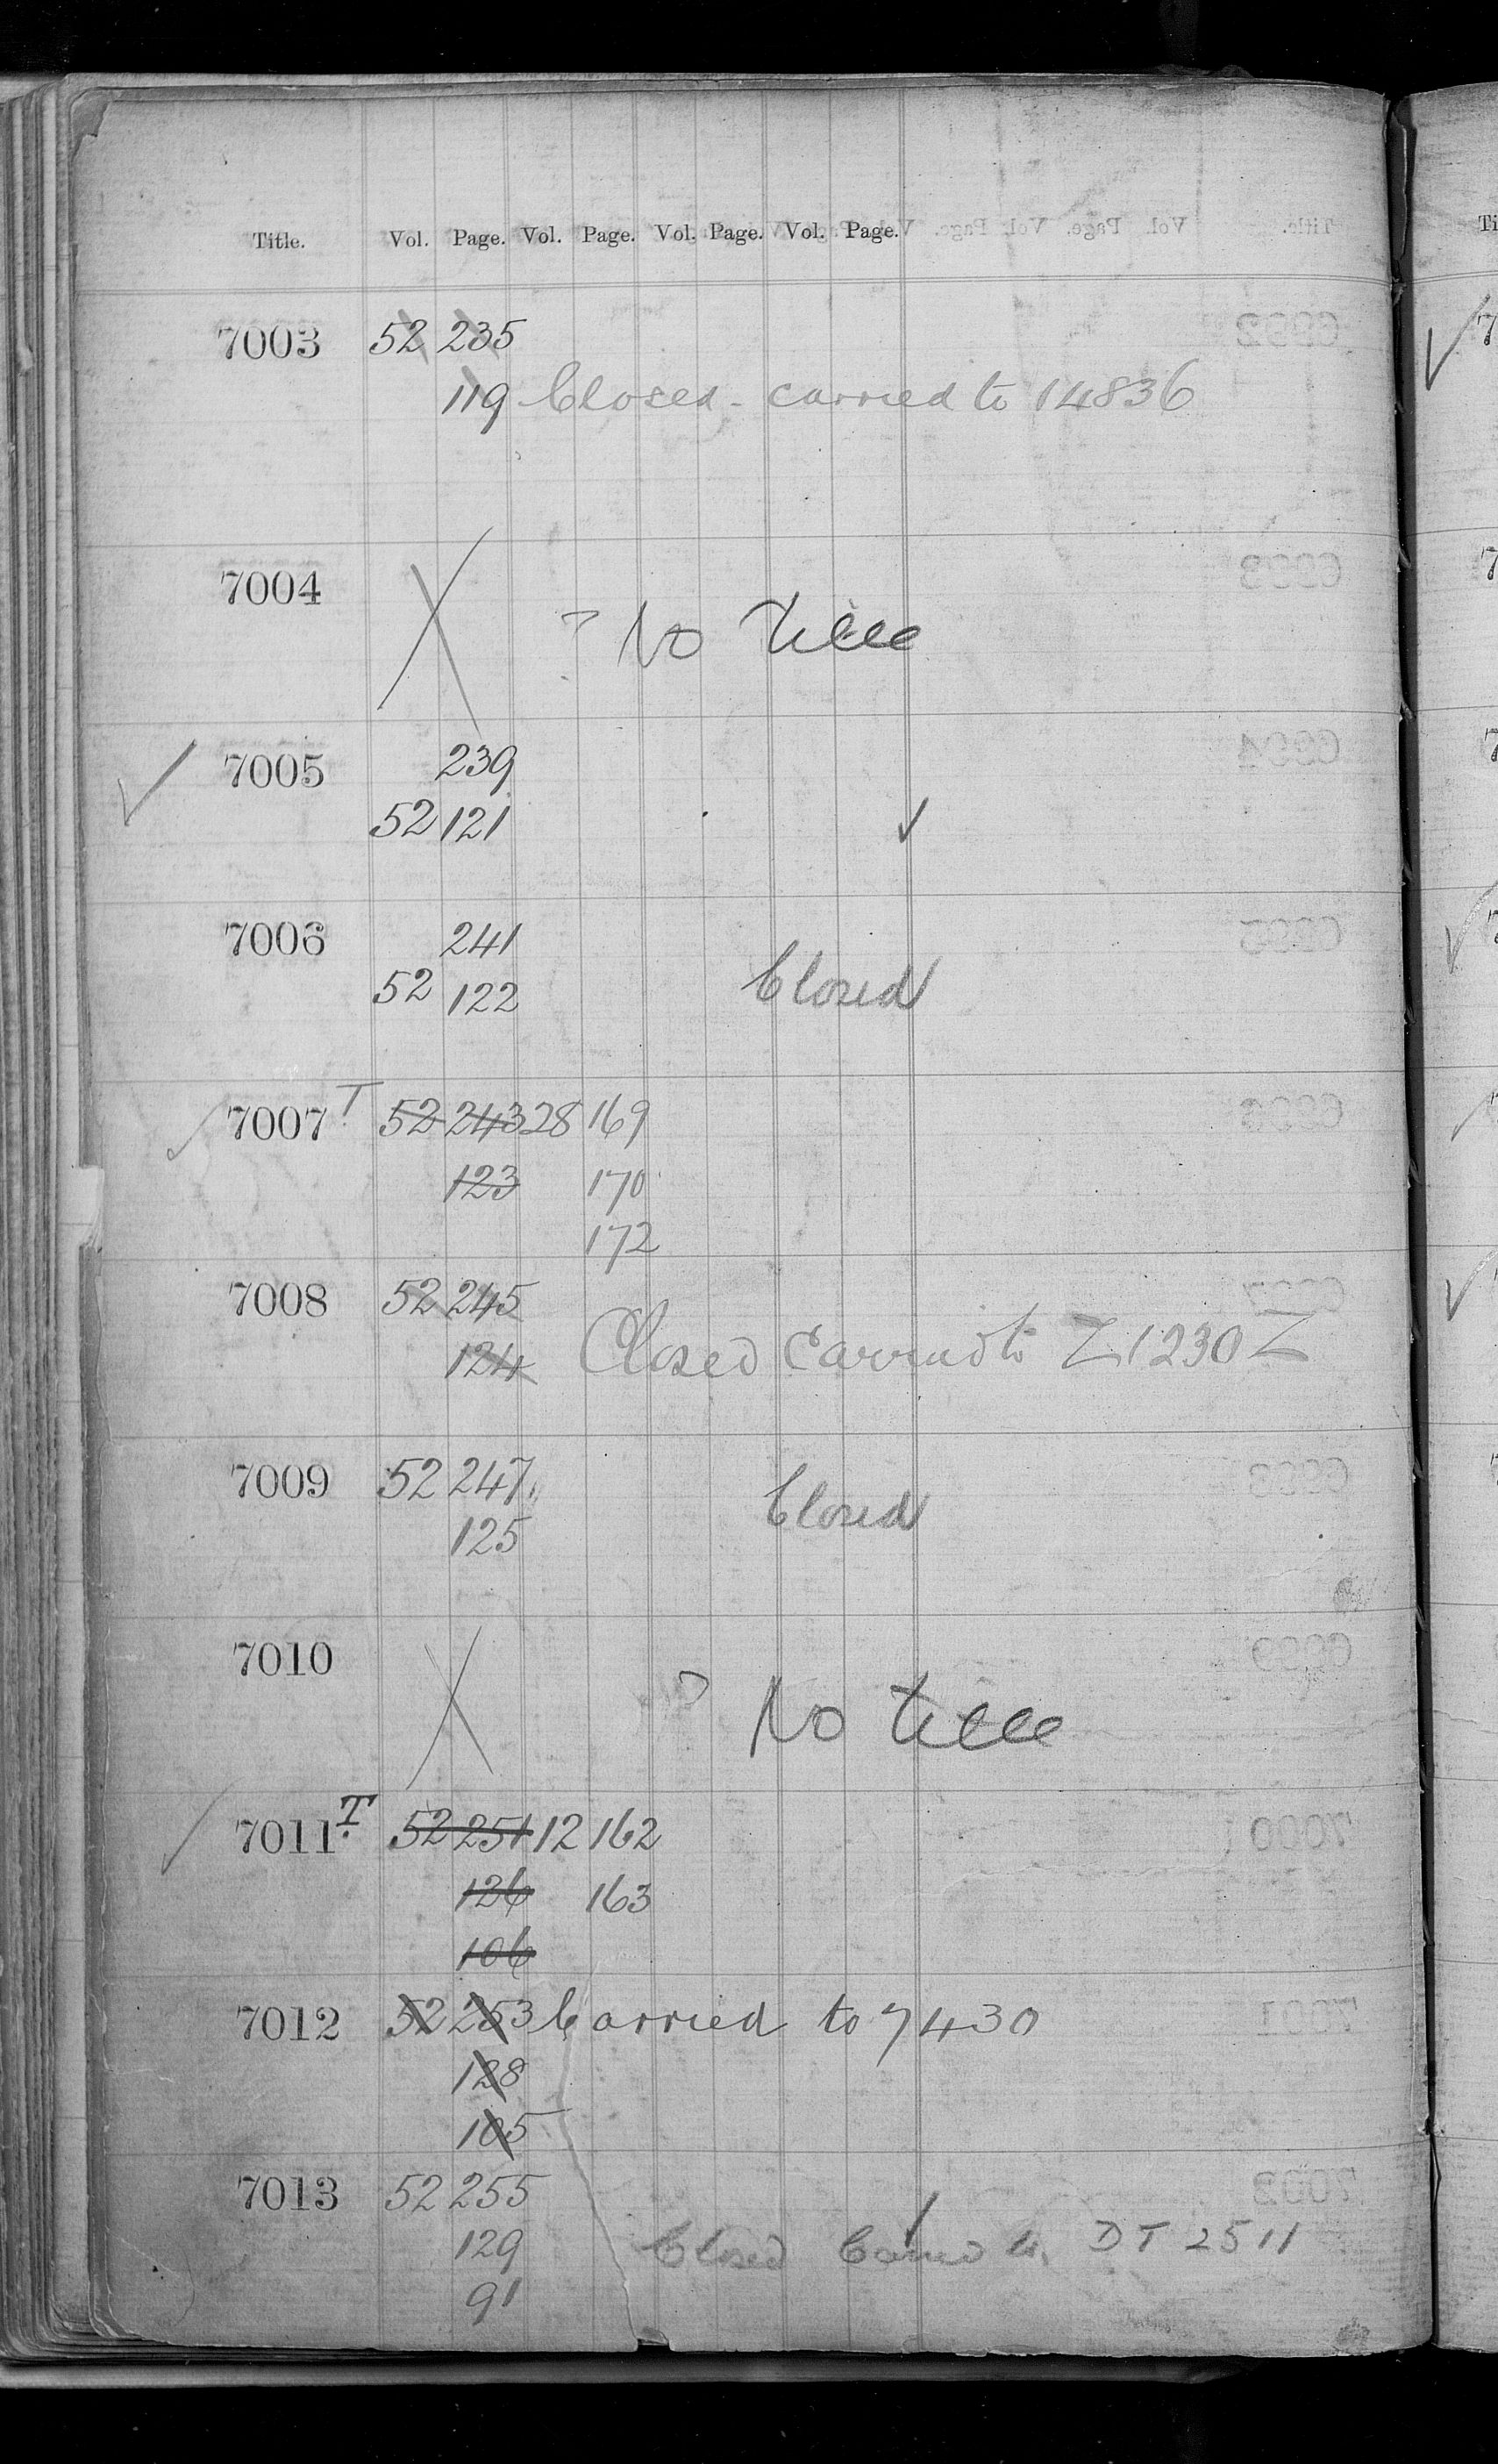 Title. Vol. Page. Vol. Page. Vol. Page. Vol. Page.
7003 52 235
119 Closed - carried to 14836
7004 X ? No title
✓ 7005 239
52 121 ✓
7006 241
52 122 Closed
✓ 7007 T 52 243 28 169
123 170
172
7008 52 245
124 Closed Carried to Z1230Z
7009 52 247
125 Closed
7010 X ? No title
✓ 7011 T. 52 251 12 162
126 163
106
7012 52 253 Carried to 7430
128
105
7013 52 255
129 Closed Carried to DT 2511
91